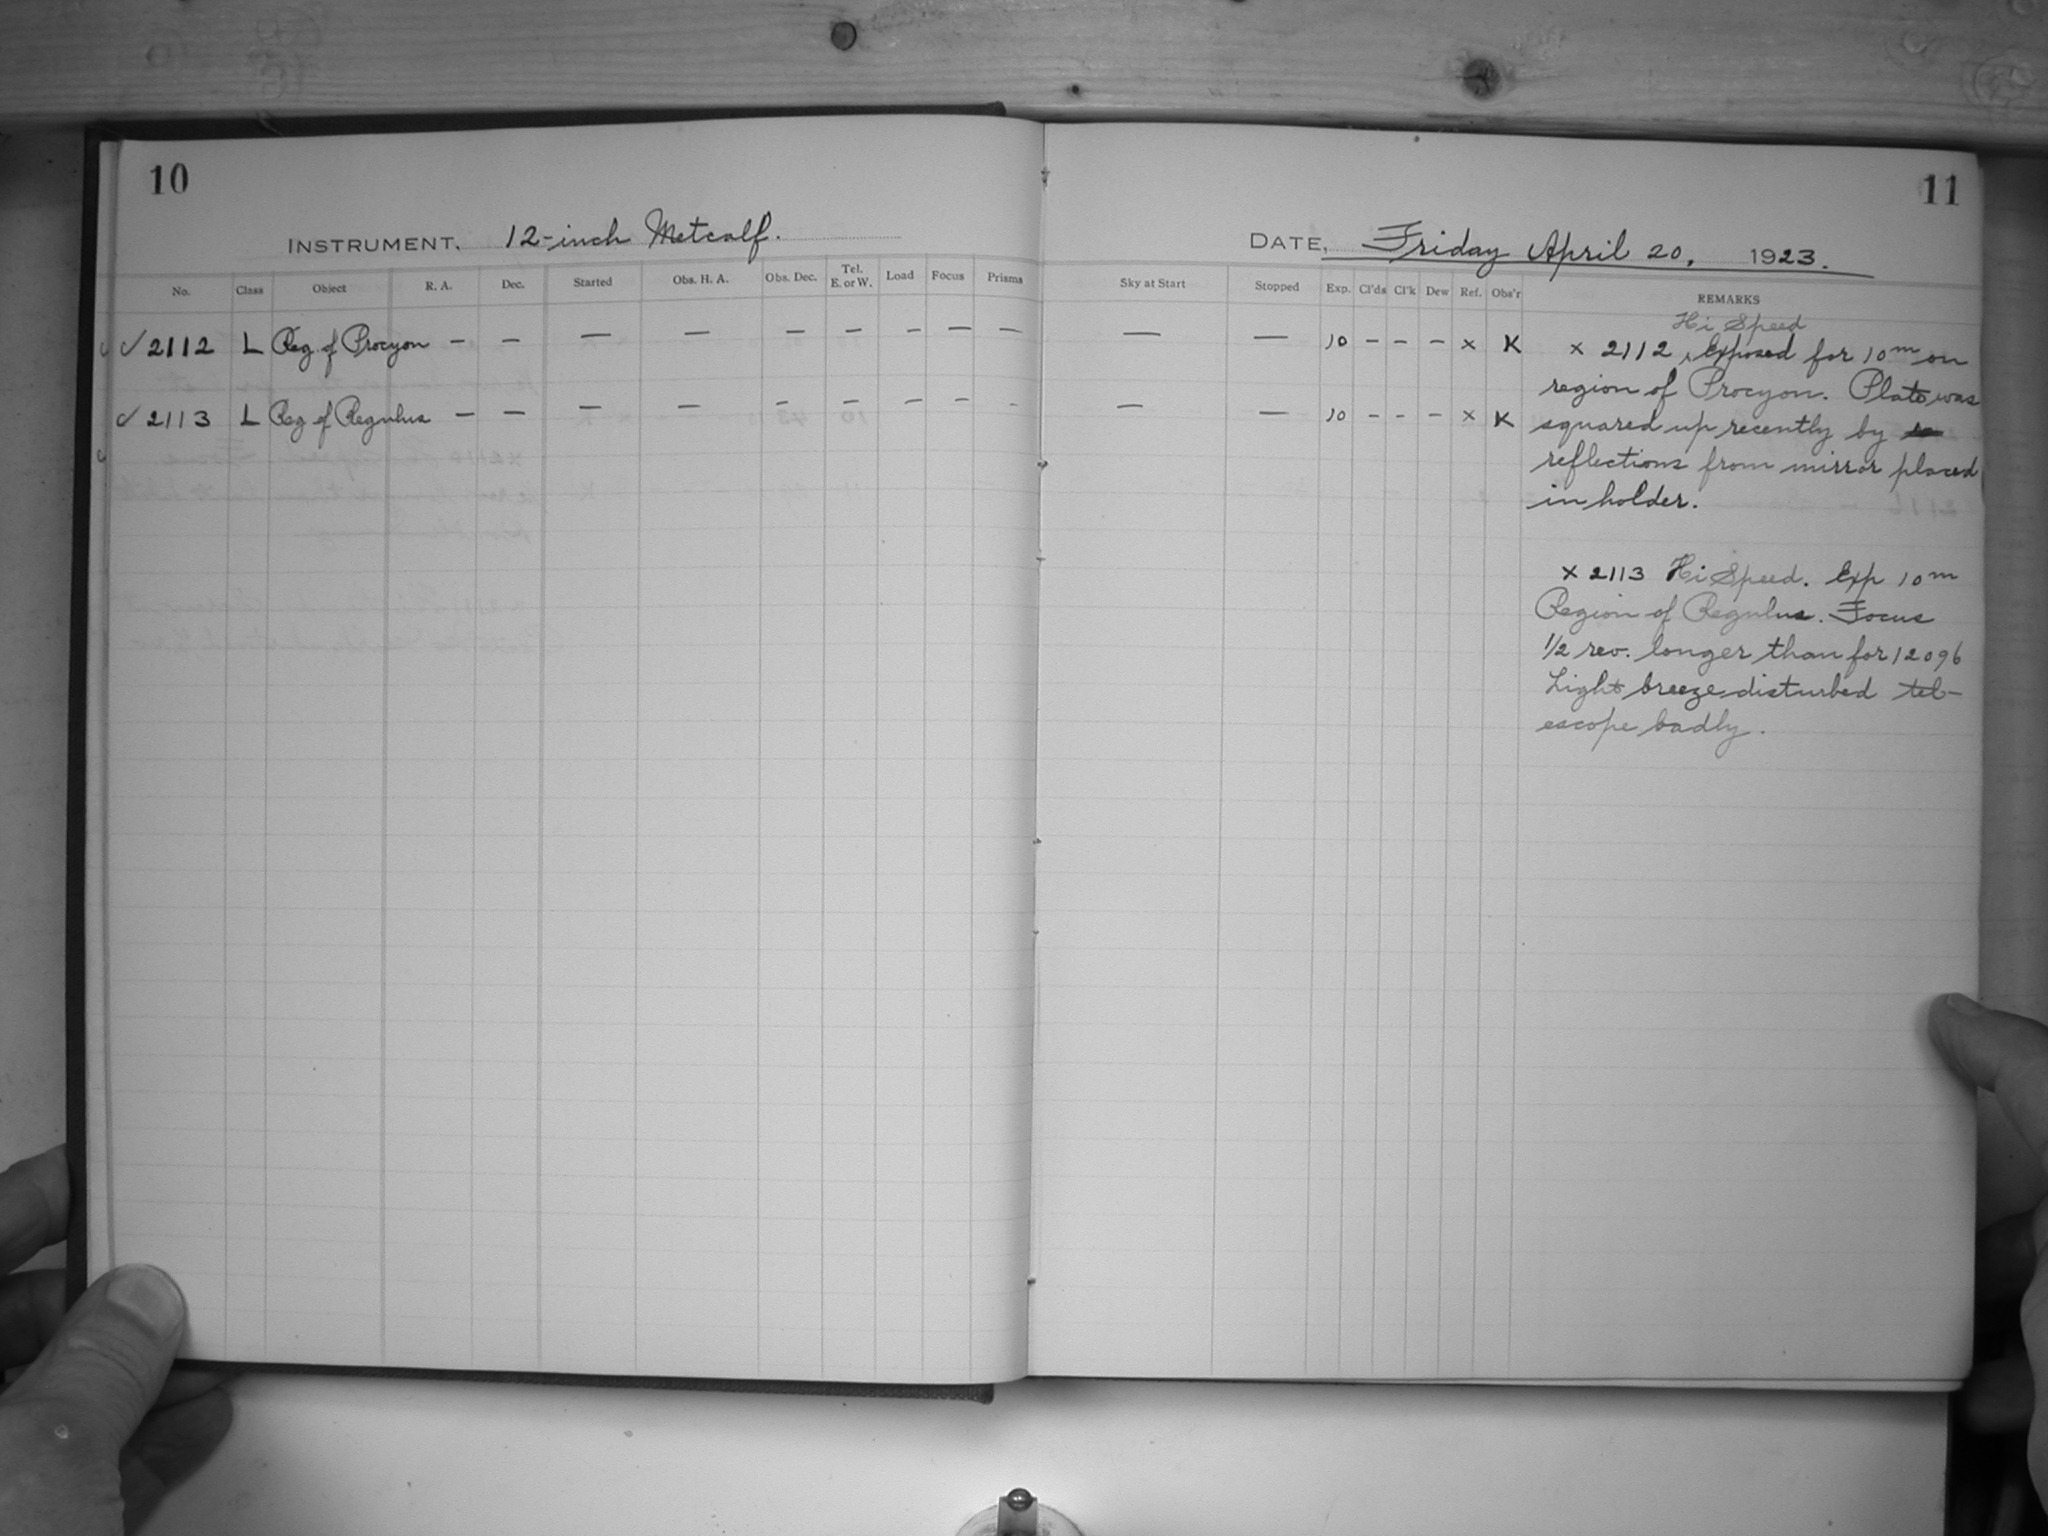 10
INSTRUMENT. 12-inch Metcalf.
No. Class Object R. A. Dec. Started Obs. H. A. Obs. Dec. Tel. E. or W. Load Focus Prisms
✓ 2112 L Reg. of Procyon — — — — — — — — —
✓ 2113 L Reg of Regulus — — — — — — — — —
11
DATE. Friday April 20, 1923.
Sky at Start Stopped Exp. Cl'ds Cl'k Dew Ref. Obs'r REMARKS
— — 10 – – – x K
— — 10 – – – x K
Hi Speed
x 2112 Exposed for 10m on
region of Procyon. Plate was
squared up recently by
reflections from mirror placed
in holder.
x 2113 Hi Speed. Exp 10m
Region of Regulus. Focus
1/2 rev. longer than for 12096
Light breeze disturbed tel-
escope badly.